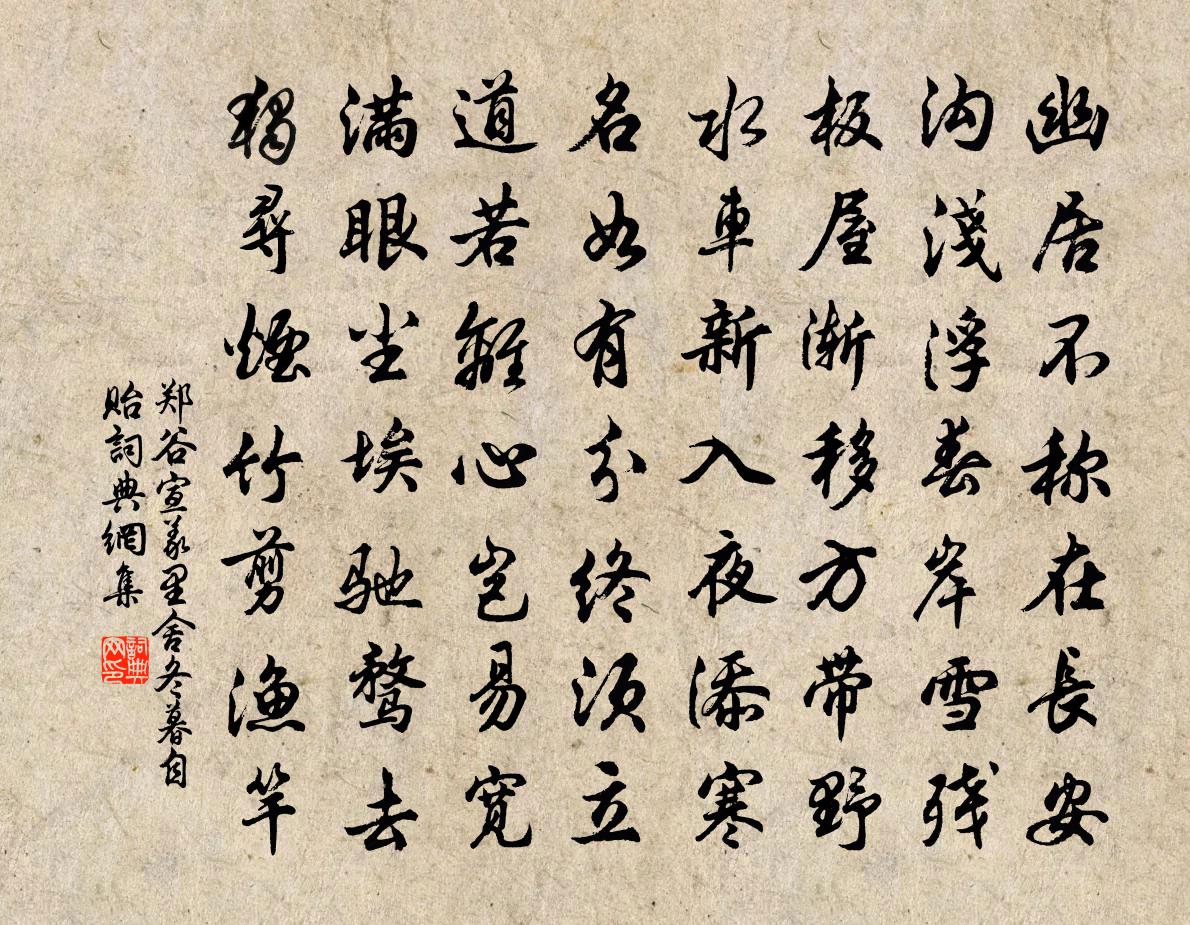 幽居不称在長安
沟淺浮春岸雪残
板屋渐移方带野
水車新入夜添寒
名如有分终须立
道若離心岂易宽
满眼尘埃驰鹜去
獨尋煙竹剪渔竿
郑谷宣義里舍冬暮自
貽詞典網集
詞典
网印